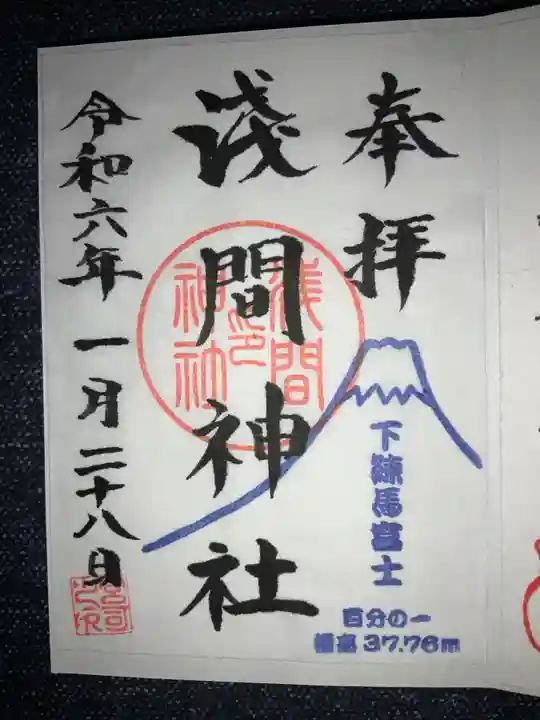 奉拝
下練馬富士
百分の一
標高37.76m
淺間神社
浅間
之印
神社
令和六年一月二十八日